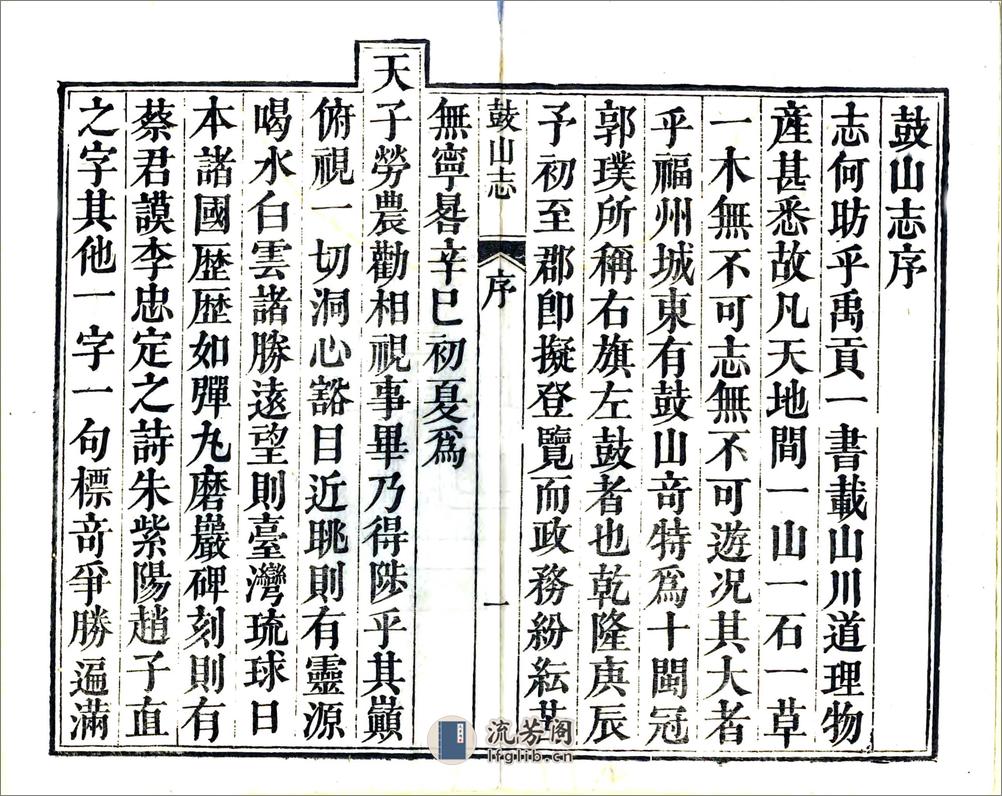 鼓山志序
志何昉乎禹貢一書載山川道理物
產甚悉故凡天地間一山一石一草
一木無不可志無不可遊况其大者
乎福州城東有鼓山竒特爲十閩冠
郭璞所稱右旗左鼓者也乾隆庚辰
予初至郡卽擬登覽而政務紛紜
鼓山志 序 一
無寧晷辛巳初夏爲
天子勞農勸相視事畢乃得陟乎其巔
俯視一切洞心豁目近眺則有靈源
喝水白雲諸勝遠望則臺灣琉球日
本諸國歴歴如彈丸磨巖碑刻則有
蔡君謨李忠定之詩朱紫陽趙子直
之字其他一字一句標竒爭勝遍滿
流芳阁
lfglib.cn